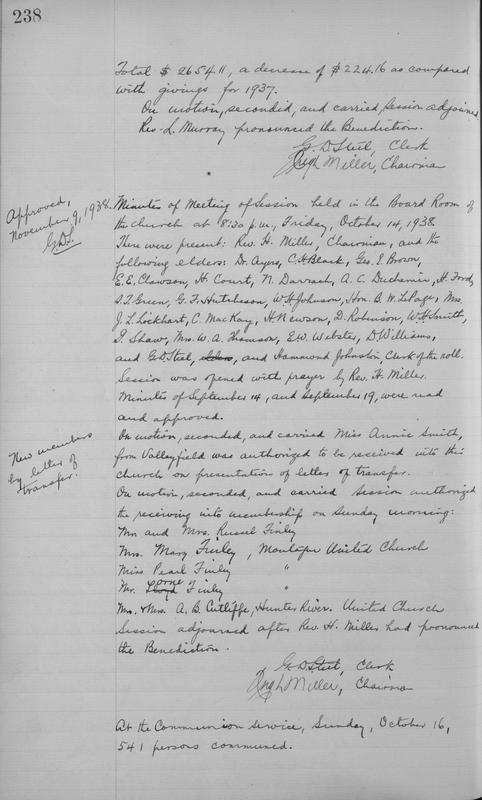 238
Total $2654.11, a decrease of $224.16 as compared
with givings for 1937.
On motion, seconded, and carried, Session adjoined.
Rev. L. Murray pronounced the Benediction.
G. D. Steel, Clerk
Hugh Miller, Chairman
Approved,
November 9, 1938.
G.D.S.
Minutes of Meeting of Session held in the Board Room of
the church at 8:30 p.m., Friday, October 14, 1938.
There were present: Rev. H. Miller, Chairman, and the
following elders: Dr. Ayers, C. H. Black, Geo. E. Brown,
E. E. Clawson, H. Court, N. Darrach, A. C. Duchemin, H. Ford,
S. T. Green, G. F. Hutcheson, W. H. Johnson, Hon. B. W. LePage, Mrs.
J. L. Lockhart, C. MacKay, H. Newson, D. Robinson, W. H. Smith,
I. Shaw, Mrs. W. A. Thomson, E. W. Webster, D. Williams,
and G. D. Steel, elders, and Hammond Johnston, Clerk of the roll.
Session was opened with prayer by Rev. H. Miller.
Minutes of September 14, and September 19, were read
and approved.
New members
by letter of
transfer.
On motion, seconded, and carried Miss Annie Smith,
from Valleyfield was authorized to be received into this
church on presentation of letter of transfer.
On motion, seconded, and carried Session authorized
the receiving into membership on Sunday morning:
Mr. and Mrs. Russel Finley
Mrs. Mary Finley, Montague United Church
Miss Pearl Finley "
Mr. Lorne Finley "
Mr. & Mrs. A. B. Cutliffe, Hunter River United Church
Session adjourned after Rev. H. Miller had pronounced
the Benediction.
G. D. Steel, Clerk
Hugh Miller, Chairman
At the Communion service, Sunday, October 16,
541 persons communed.